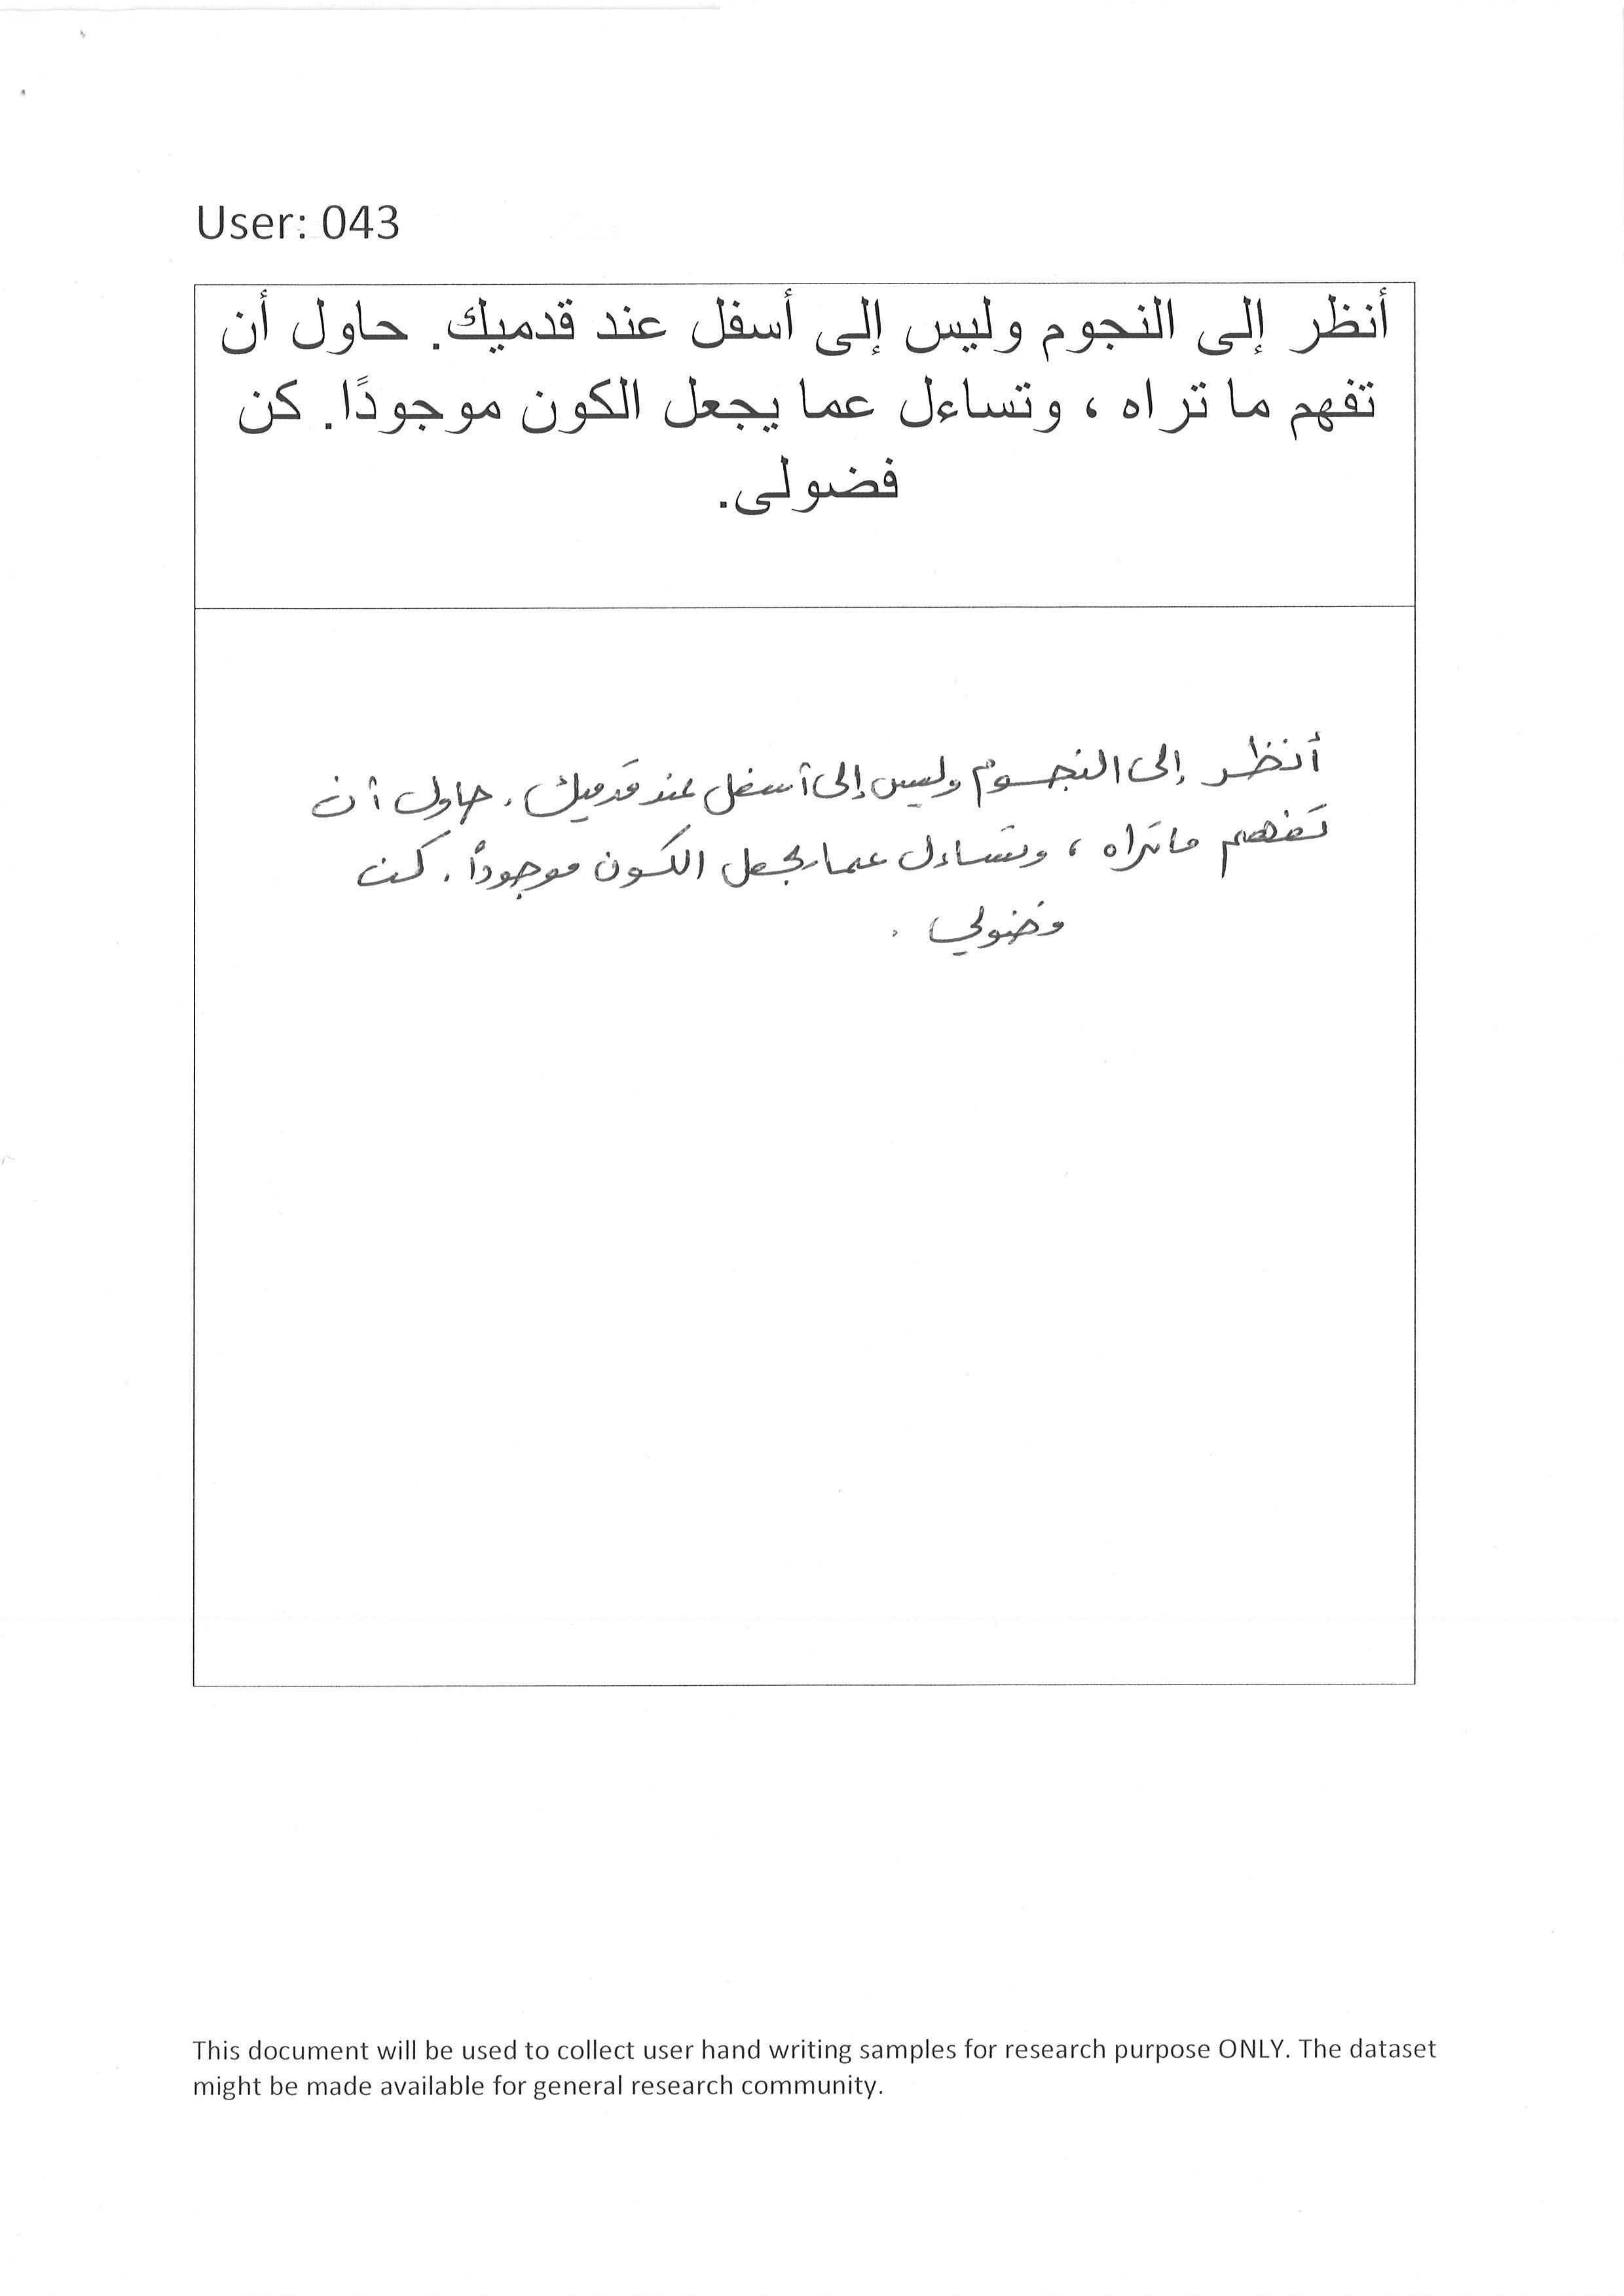 User: 043
أنظر إلى النجوم وليس إلى أسفل عند قدميك. حاول أن
تفهم ما تراه ، وتساءل عما يجعل الكون موجودًا. كن
فضولى.
أنظر إلى النجوم وليس إلى أسفل عند قدميك . حاول أن
تفهم ما تراه ، وتساءل عما يجعل الكون موجوداً . كن
فضولي .
This document will be used to collect user hand writing samples for research purpose ONLY. The dataset
might be made available for general research community.